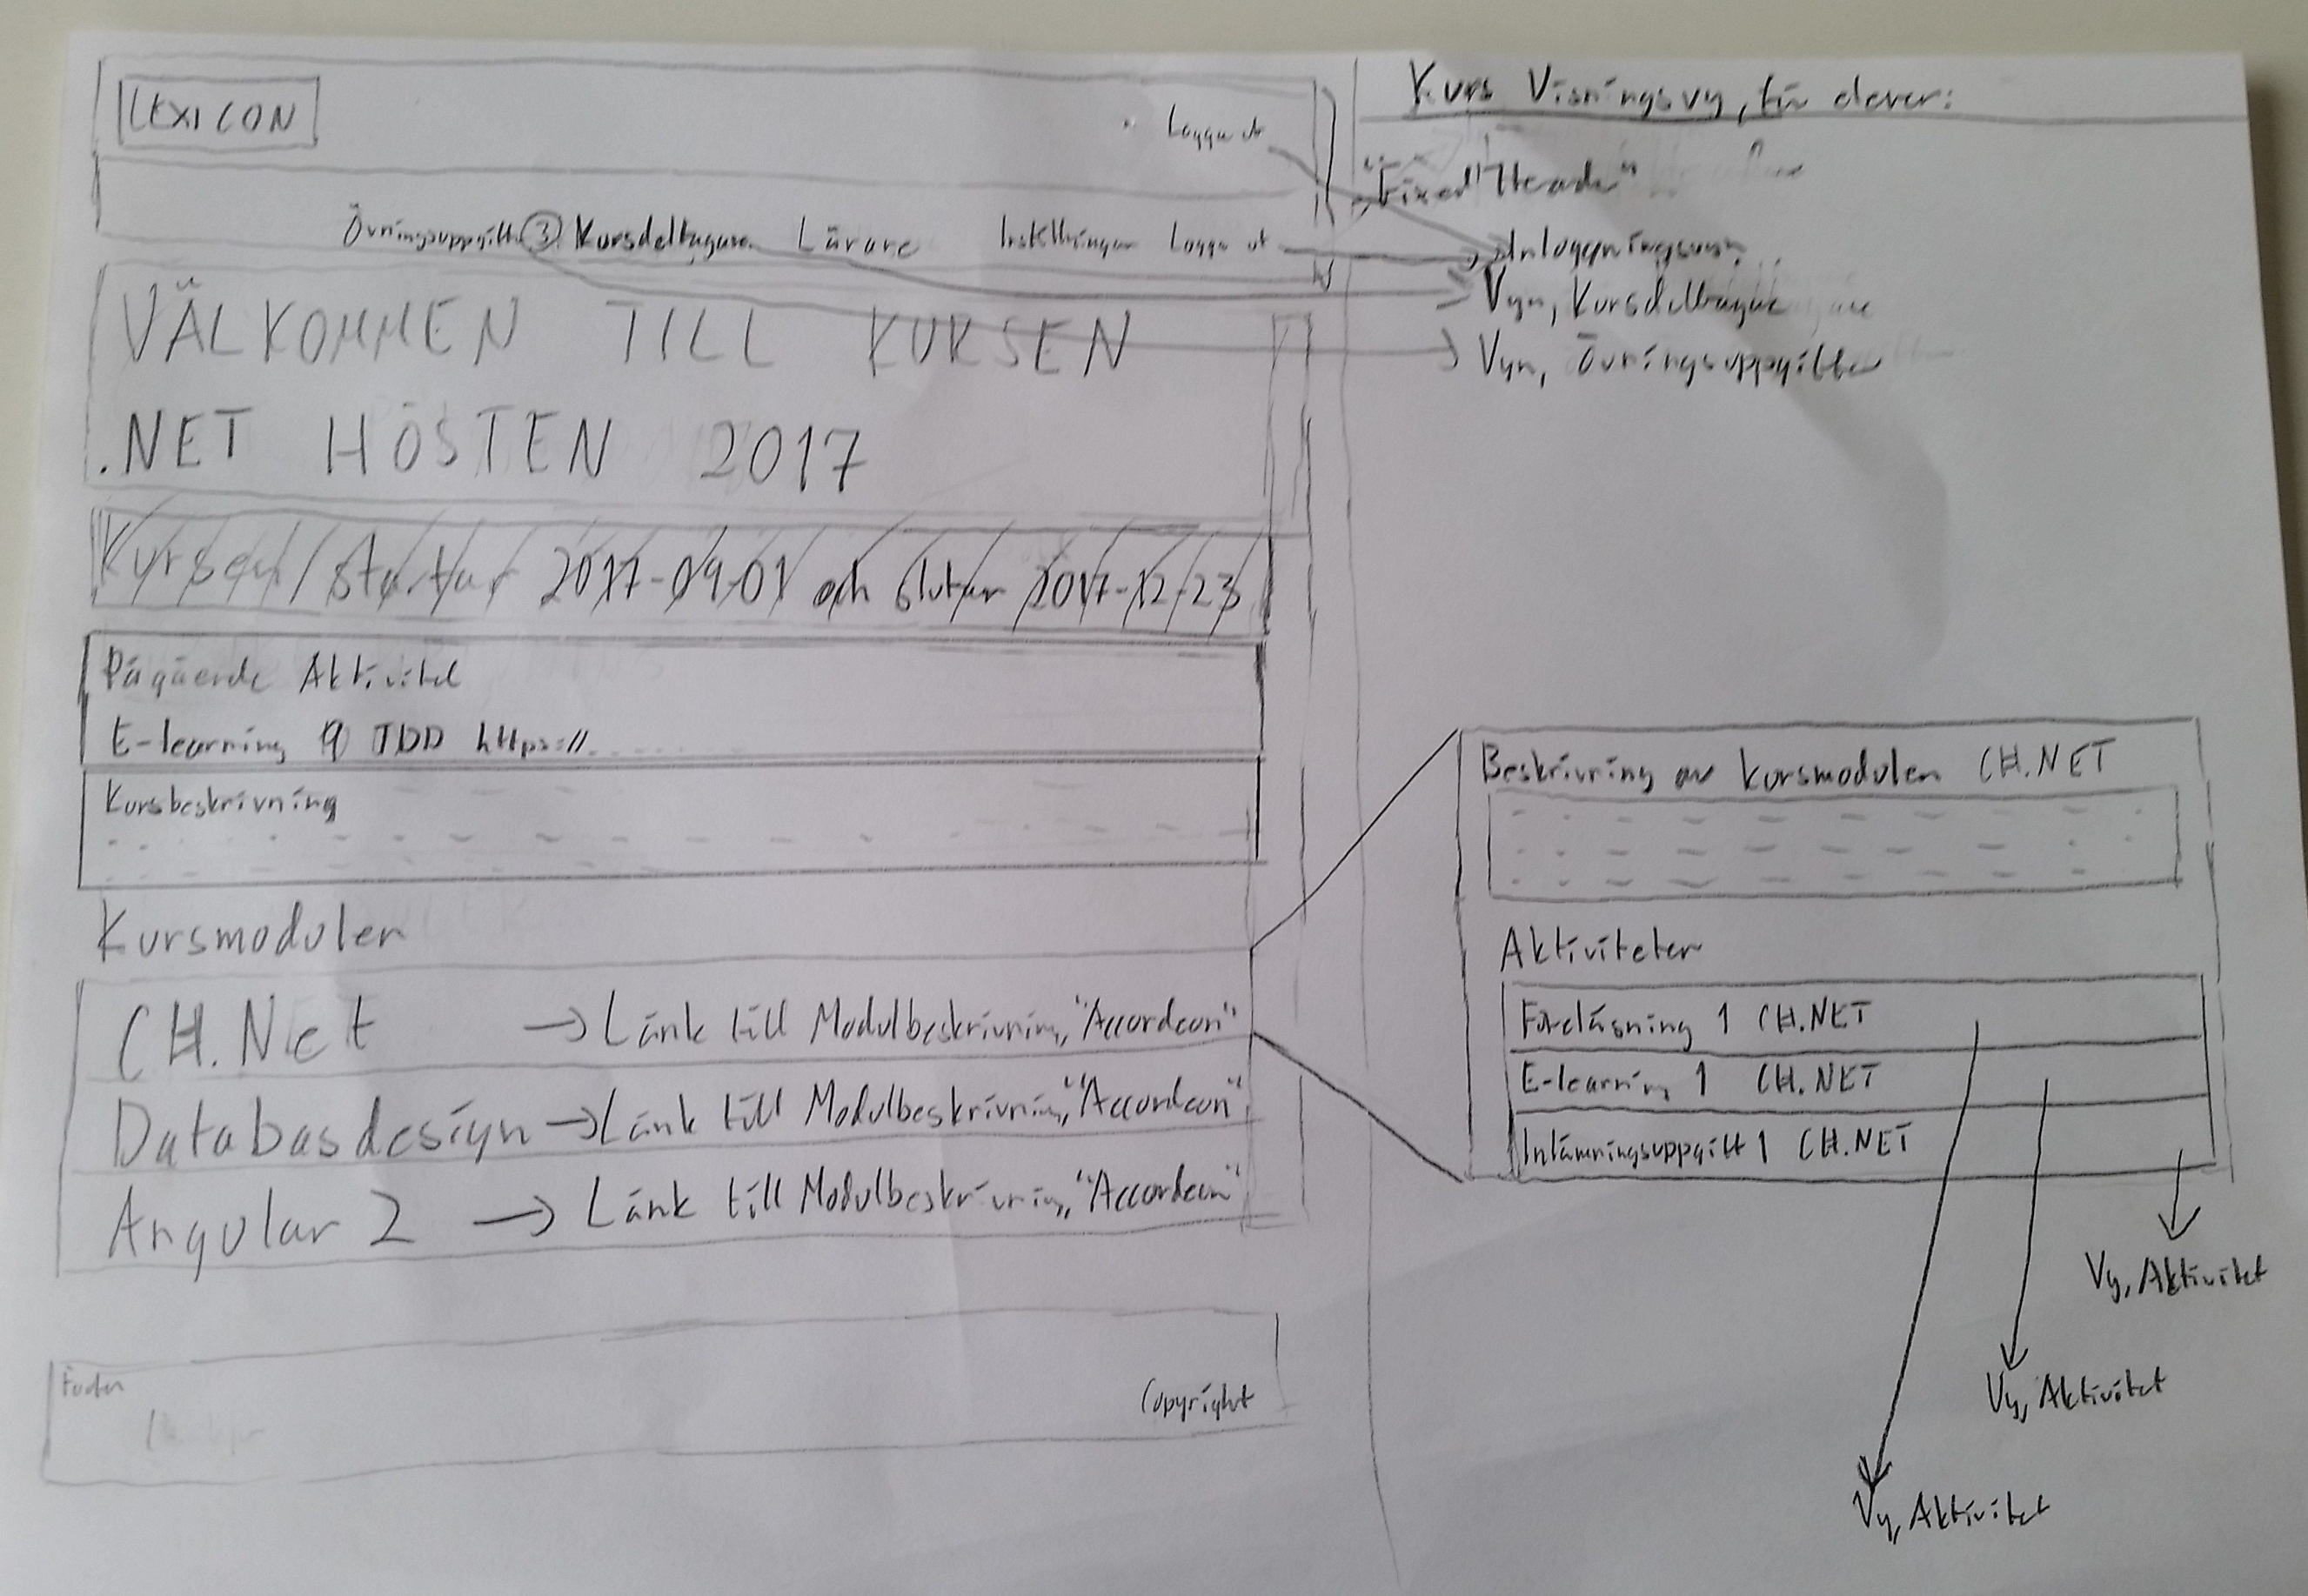 LEXICON
Logga ut
Övningsuppgifter 3 Kursdeltagare Lärare Inställningar Logga ut
VÄLKOMMEN TILL KURSEN
.NET HÖSTEN 2017
Kursen startar 2017-09-01 och slutar 2017-12-23
Pågående Aktivitet
E-learning 9 TDD https://......
Kursbeskrivning
Kursmodulen
CH.Net → Länk till Modulbeskrivning, "Accordeon"
Databasdesign → Länk till Modulbeskrivning, "Accordeon"
Angular 2 → Länk till Modulbeskrivning, "Accordeon"
Footer
Copyright
Kurs Visningsvy, för elever:
"Fixed Header"
Inloggningsvyn
Vyn, Kursdeltagare
Vyn, Övningsuppgifter
Beskrivning av kursmodulen CH.NET
Aktiviteter
Föreläsning 1 CH.NET
E-learning 1 CH.NET
Inlämningsuppgift 1 CH.NET
Vy, Aktivitet
Vy, Aktivitet
Vy, Aktivitet